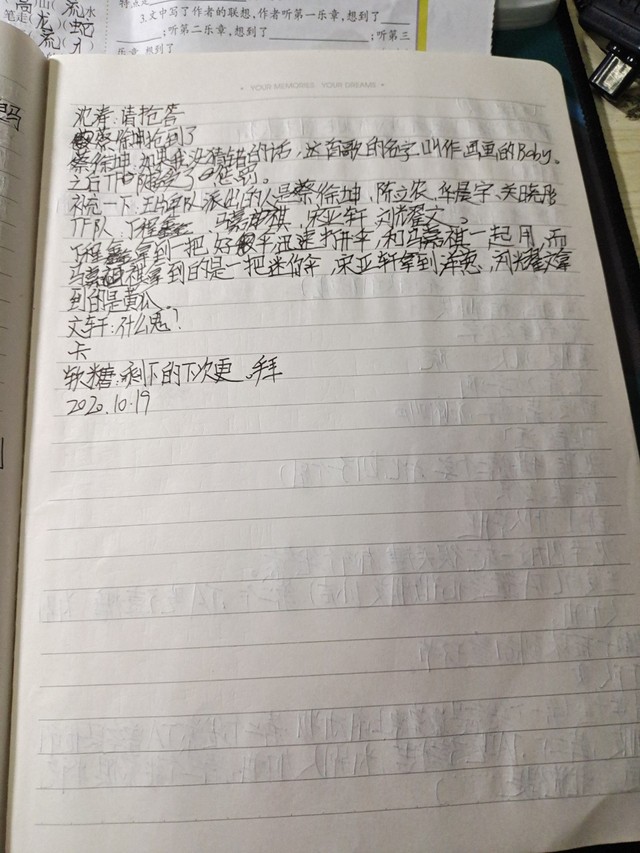 高
山(
流
水
笔走(
龙
)(
蛇
流
3.文中写了作者的联想,作者听第一乐章,想到了
;听第二乐章,想到了
;听第三
乐章,想到了
YOUR MEMORIES YOUR DREAMS
沈涛:请抢答
蔡徐坤抢到了
蔡徐坤:如果我没猜错的话,这首歌的名字叫作画里的Baby。
之后TF队接受了惩罚。
补充一下:王牌队派出的人是蔡徐坤,陈立农、华晨宇、关晓彤
TF队:丁程鑫,马嘉祺,宋亚轩,刘耀文。
丁程鑫拿到一把好伞迅速打开伞,和马嘉祺一起用,而
马嘉祺拿到的是一把迷你伞,宋亚轩拿到洋葱,刘耀文拿
到的是黄瓜。
文轩:什么鬼?
卡
软糖:剩下的下次更。拜
2020.10.19